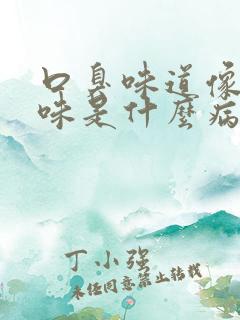 口臭味道像
味是什麼病
丁小强
未经同意禁止转载